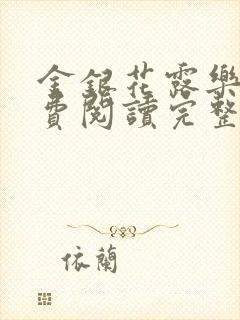 金銀花露樂
費閱讀完整
依蘭